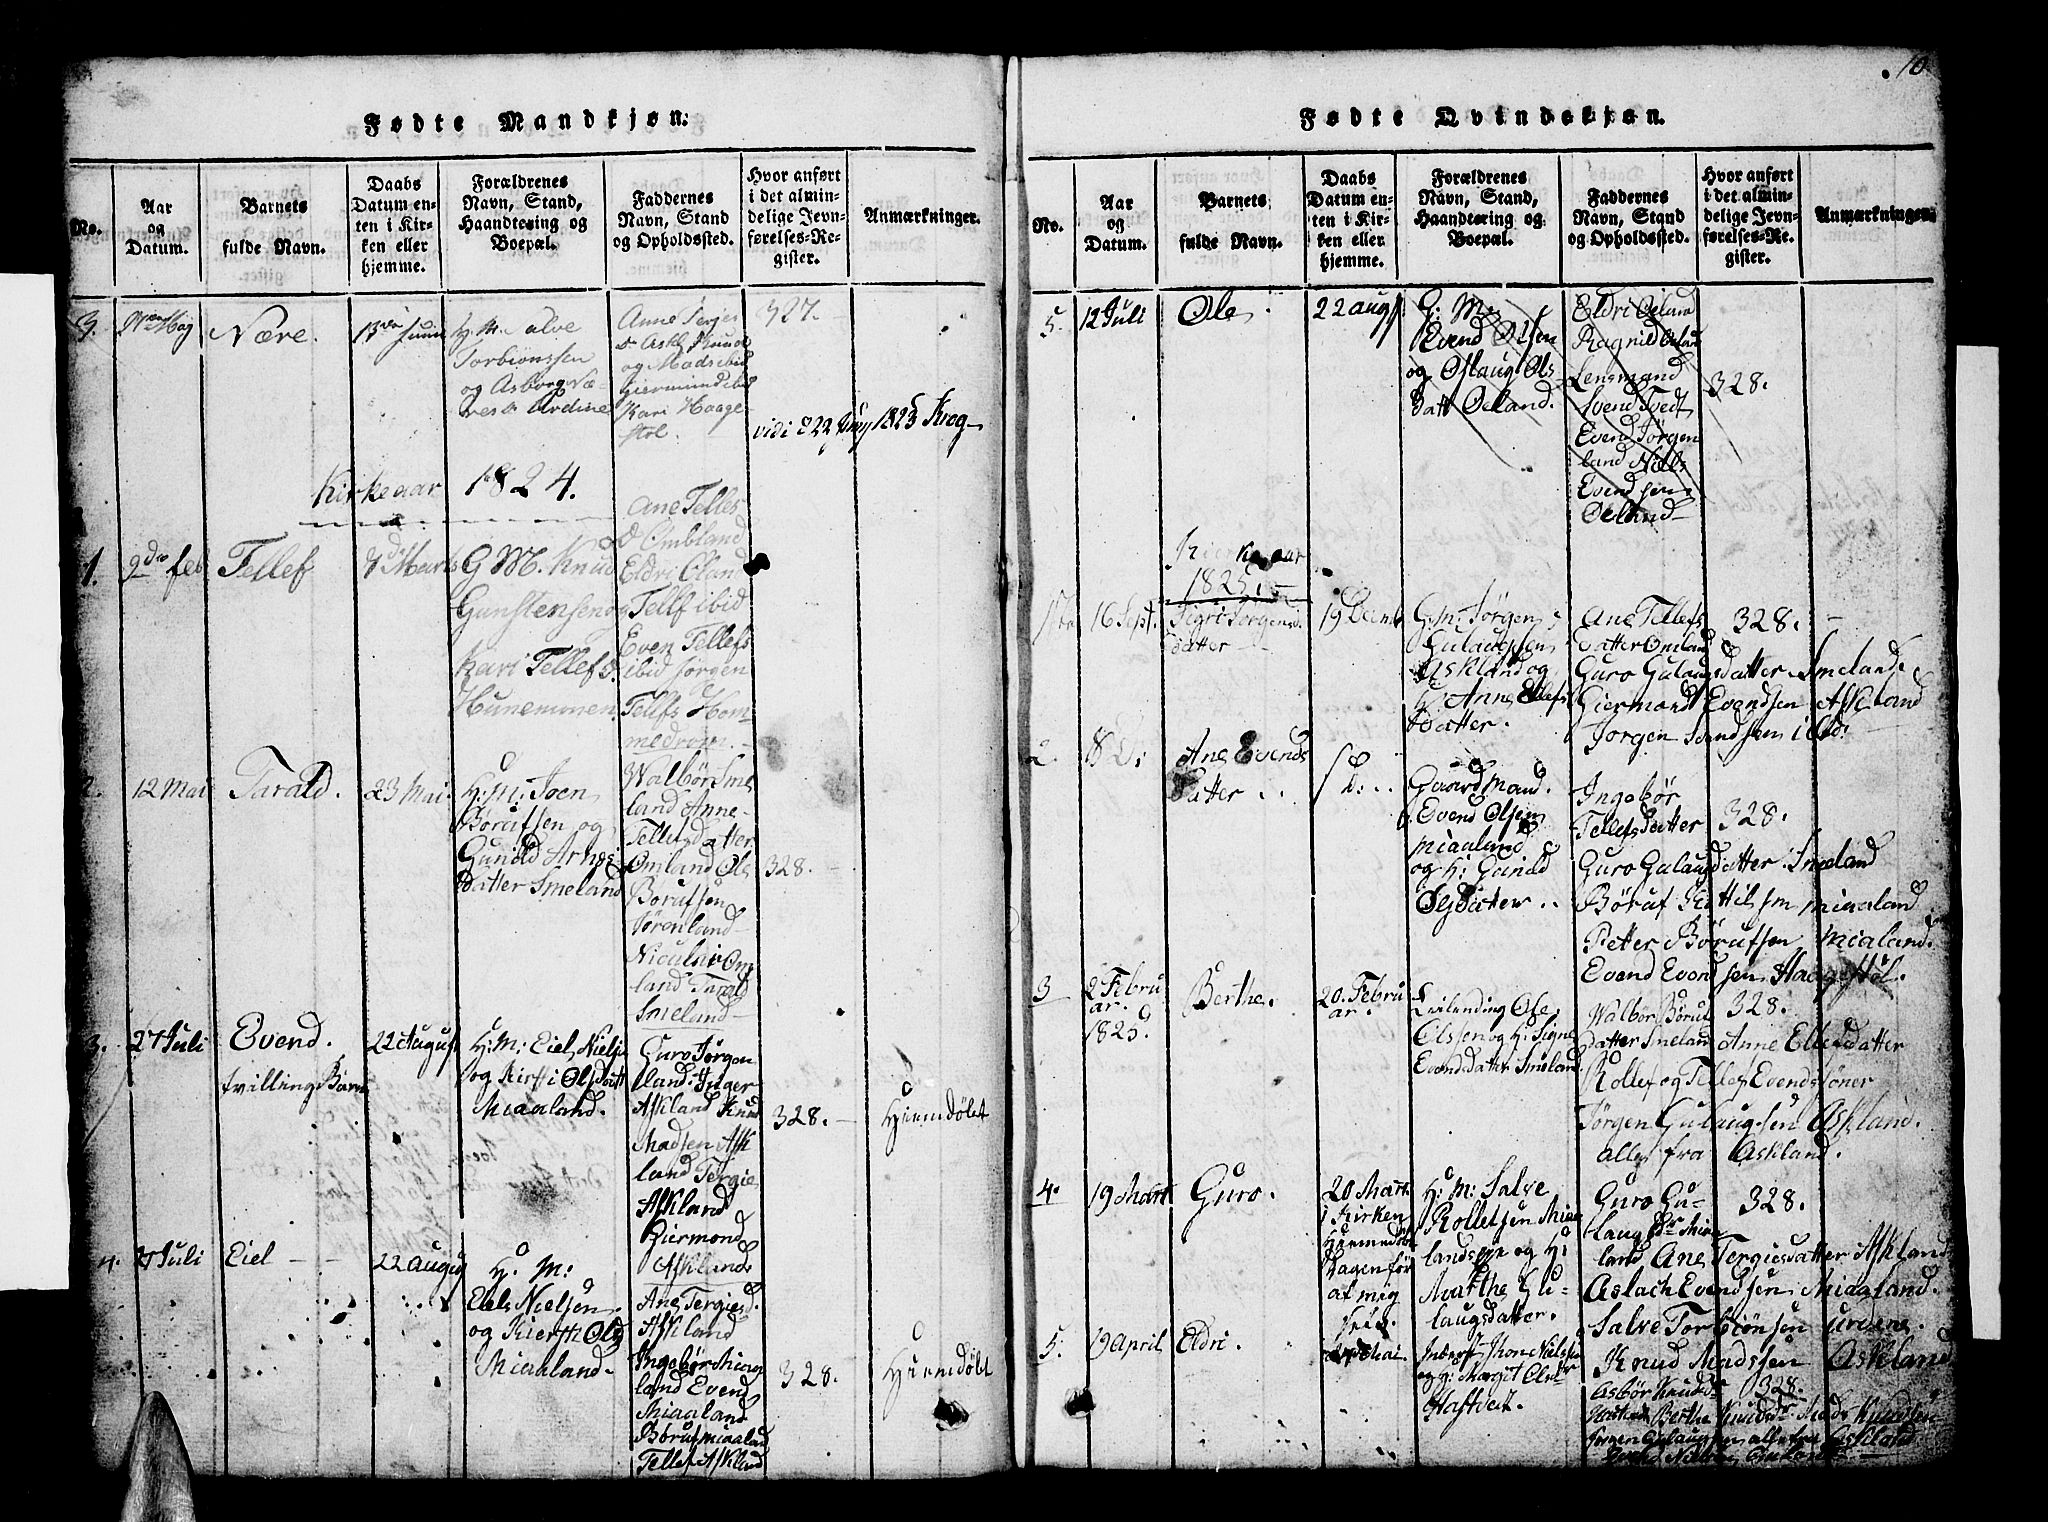 10
Fødte Mandkjøn:
No.
Aar
og
Datum.
Barnets
fulde Navn.
Daabs
Datum en-
ten i Kir-
ken eller
hjemme.
Forældrenes
Navn, Stand,
Haandtering og
Boepæl.
Faddernes
Navn, Stand
og Opholdssted.
Hvor anført
i det almin-
delige Jevn-
førelses-Re-
gister.
Anmærkninger.
3.
Nære.
H. M. alve
Torbiønssen
og Asborg Næ-
Anne Terjes
og Mads ibid
Kari Haage-
støl.
327.
vidi 1823 Krog
Kirkeaar 1824.
1.
9de feb
Tellef
G M. Knud
Gunstensen og
Kari Tellefs D.
Hunemmen
Ane Telles
D Ombland
Eldri Oland
Tellf ibid
Even Tellefs
ibid Jørgen
Tellfs Hom-
2.
12 Mai
Tarald.
23 Mai.
H: M: Joen
Børufsen og
Gunild Arnes
datter Smeland
Walbør Sme
land Anne
Tellefsdatter
Omland Ole
Børufsen
Jørenland
Niculai Om
land Tarald
Smeland
328.
3.
27 Juli
Evend.
tvilling Barn
22 August
H: M: Eiel Niels
og Kirsti Olsdatt
Miaaland.
Guro Jørgen
land. Inger
Askland Knud
Madsen Ask
land Tergie
Askland
Giermond
Askland
328.
Hjemdøbt
4.
27 Juli
Eiel
22 august
H. M:
Eiels Nielsen
og Kiersti Olsd
Miaaland.
Ane Tergiesd.
Askland
Ingebør Miaa
land Evend
Miaaland
Børuf Miaaland
Tellef Askland
328.
Hjemdøbt
Fødte Qvindekjøn.
No.
Aar
og
Datum.
Barnets
fulde Navn.
Daabs
Datum en-
ten i Kir-
ken eller
hjemme.
Forældrenes
Navn, Stand,
Haandtæring og
Boepæl.
Faddernes
Navn, Stand
og Opholdssted.
Hvor anført
i det almin-
delige Jevn-
førelses-Re-
gister.
Anmærkninger.
5.
12 Juli
Ole
22 aug
G: M:
Evend Olsen
og Oslaug Ols
datt Øeland.
Eldri Øeland
Ragnild Øeland
Lensmand
Svend Tvedt
Evend Jørgen
land Niels
Evendsen
Øeland
328.
Kirkeaar
1825.
16 Sept.
Sigri Jørgens
datter
19 Decemb
G. m. Jørgen
Gulaugsen
Askland og
H. Anne Ellefs
datter.
Ane Tellefs
datter Omland
Guro Gulaugsdatter Smeland.
Giermond Evendsen Askland
Jørgen Evendsen ibid:
328.
2.
18 D:
Ane Evends
datter
Gaardmand.
Evend Olsen
Miaaland
og H: Gunild
Olsdatter
Ingebør
Tellefsdatter
Guro Gulaugdatter Smeland
Børuf Kittilsen Miaaland
Petter Børufsen Miaaland.
Evend Evendsen Haagestøl.
328.
3
2 Febru
ar.
1825.
Berthe.
20. Febru
ar.
Ole
Olssen og H: Signe
Evendsdatter Smeland.
Walbør Børuf
datter Smeland Anne Ellefsdatter
Rollef og Tellef Evendssøner
Jørgen Gulaugsen Askland.
alle fra Askland.
328.
4.
19 Mart
Guro.
20 Mart.
i Kirken
Hjemmedøbt
Dagen før
af mig
selv.
H: M: Salve
Rollefsen Miaa
landsøye og H:
Marthe Gu-
laugsdatter.
Guro Gu-
laugsdr Miaa
land Ane Tergiesdatter Askland
Aslach Evendsen Miaaland.
Salve Torbiønsen Urdene.
Knud Madssen Askland
328.
5.
19 April
Eldri.
Jhon Nielssen
og H: Margit
Haftveit.
Asbør Knudsdr
Berthe Knudsdr Mads Knudsen
Jørgen Gulaugsen alle fra Askland
328.